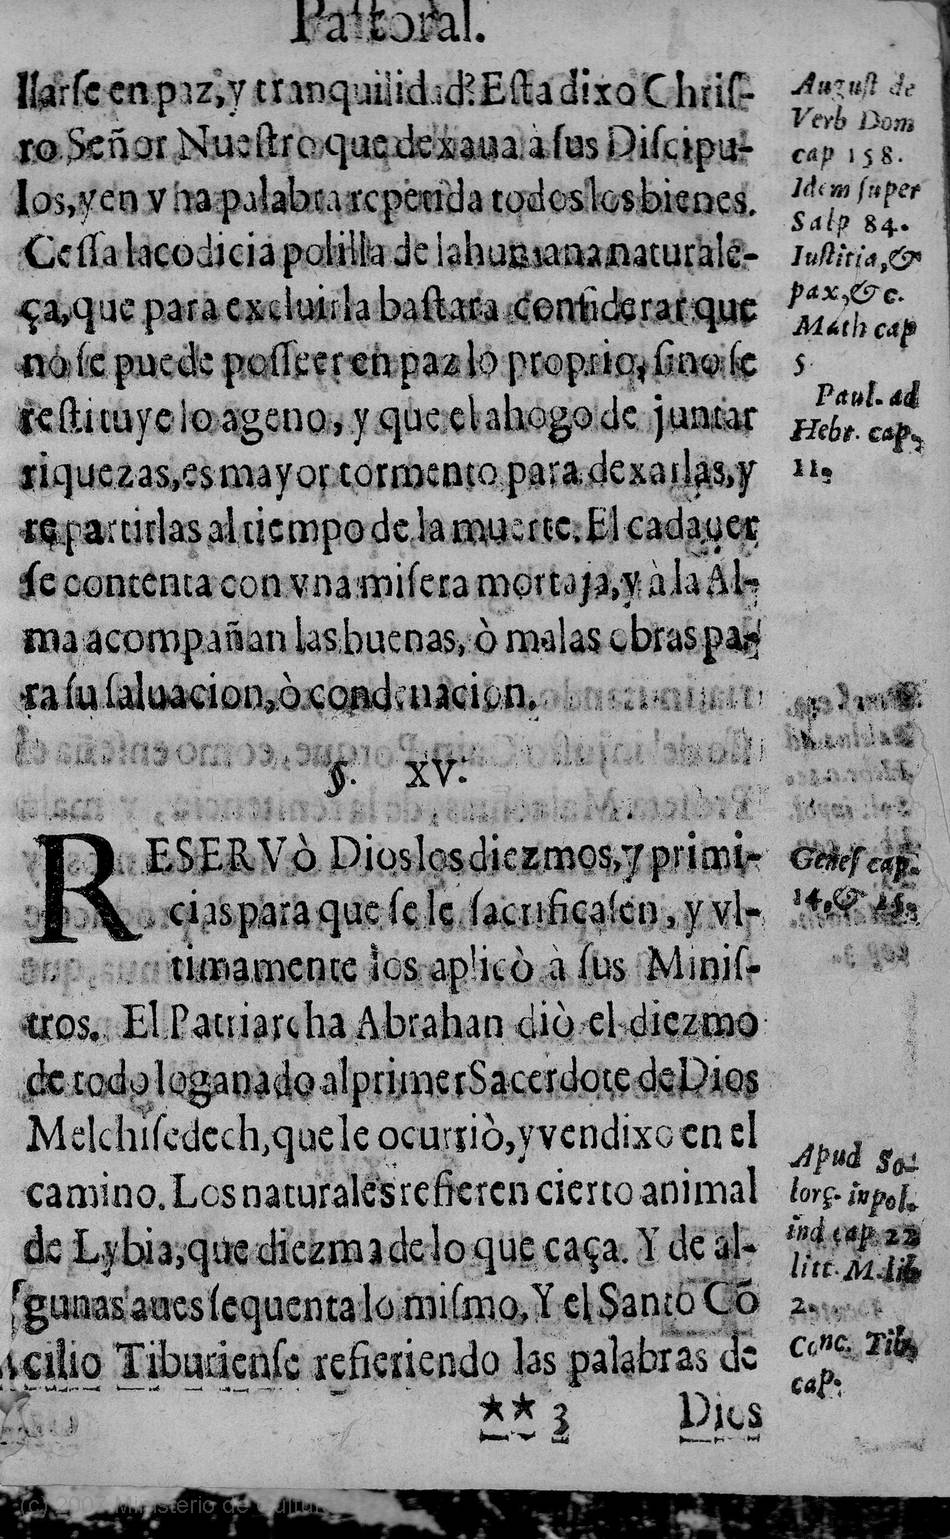 Pastoral.
llarse en paz, y tranquilidad? Esta dixo Chris-
ro Señor Nuestro que dexaua à sus Discipu-
los, y en vna palabra repetida todos los bienes.
Cessa la codicia polilla de la humana naturale-
ça, que para excluirla bastara considerar que
no se puede posseer en paz lo proprio, sino se
restituye lo ageno, y que el ahogo de juntar
riquezas, es mayor tormento para dexarlas, y
repartirlas al tiempo de la muerte. El cadauer
se contenta con vna misera mortaja, y à la Al-
ma acompañan las buenas, ò malas obras pa-
ra su saluacion, ò condenacion.
§. XV.
RESERVò Dios los diezmos, y primi-
cias para que se le sacrificasen, y vl-
timamente los aplicò à sus Minis-
tros. El Patriarcha Abrahan diò el diezmo
de todo lo ganado al primer Sacerdote de Dios
Melchisedech, que le ocurriò, y vendixo en el
camino. Los naturales refieren cierto animal
de Lybia, que diezma de lo que caça. Y de al-
gunas aues se quenta lo mismo, Y el Santo Cõ
cilio Tiburiense refieriendo las palabras de
** 3 Dios
August de
Verb Dom
cap 158.
Idem super
Salp 84.
Iustitia, &
pax, & c.
Math cap
5
Paul. ad
Hebr. cap.
11.
Genes cap.
14. & 15.
Apud So-
lorç. in pol.
ind cap 22
litt. M. lib
2.
Conc. Tib.
cap.
(c) Ministerio de Cultura